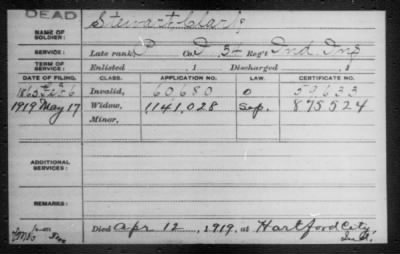 DEAD
NAME OF SOLDIER: Stewart Clark
SERVICE: Late rank P Co. D Reg't Ind. Inf
TERM OF SERVICE: Enlisted , 1 Discharged , 1
DATE OF FILING. CLASS. APPLICATION NO. LAW. CERTIFICATE NO.
1863 6 Invalid, 60680 O 59633
1919 May 17 Widow, 1141,028 Sep. 875524
Minor,
ADDITIONAL SERVICES:
REMARKS:
Died Apr 12, 1919, at Hartford City
Ind.